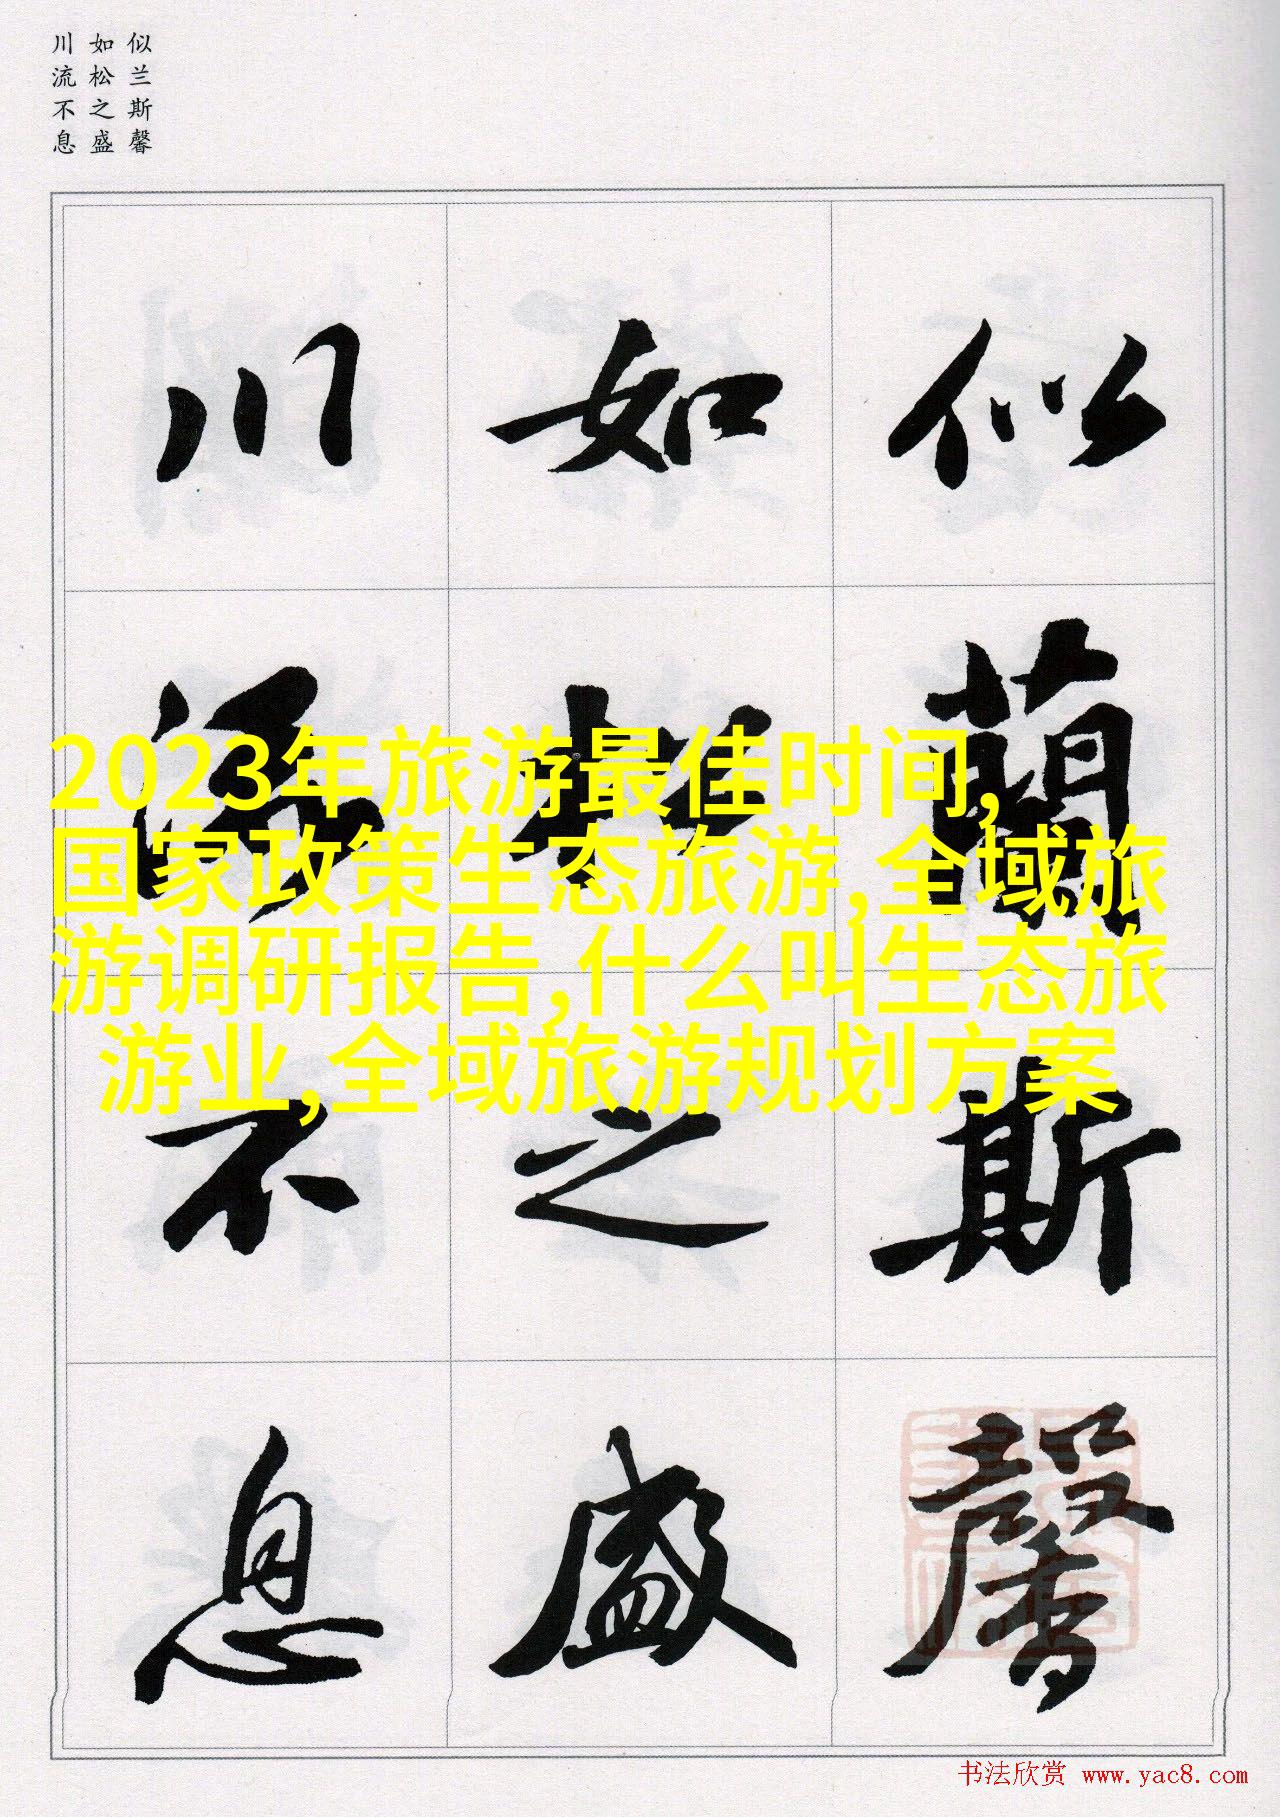 似兰斯馨
如松之盛
川流不息
似蘭斯馨
如松之盛
川流不息
2023年旅游最佳时间,
国家政策生态旅游,全域旅
游调研报告,什么叫生态旅
游业,全域旅游规划方案
书法欣赏 www.yac8.com